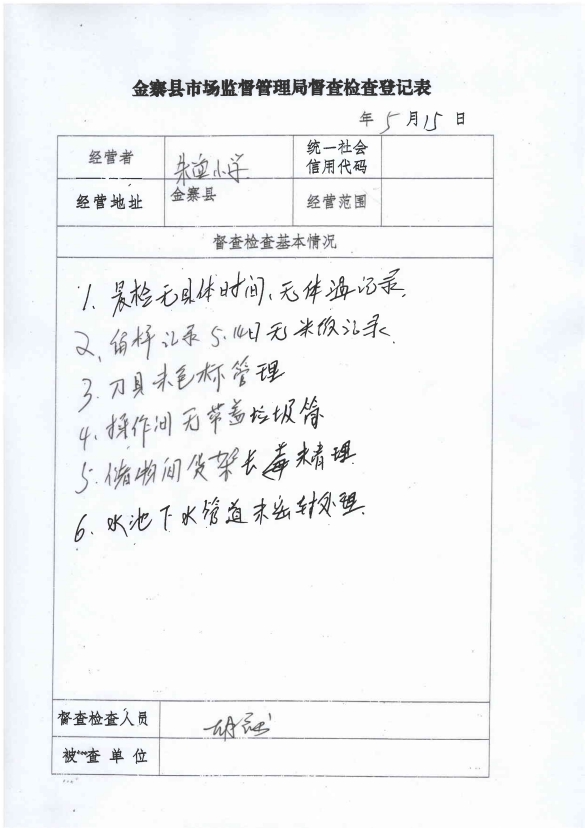 金寨县市场监督管理局督查检查登记表
年 5 月 15 日
经营者 朱 小学 统一社会信用代码
经营地址 金寨县 经营范围
督查检查基本情况
1. 晨检无具体时间、无体温记录.
2、留样记录 5.14日无米饭记录.
3. 刀具未色标管理
4. 操作间无带盖垃圾筒
5. 储物间货架长毒未清理.
6. 水池下水管道未密封处理.
督查检查人员 胡
被 查单位